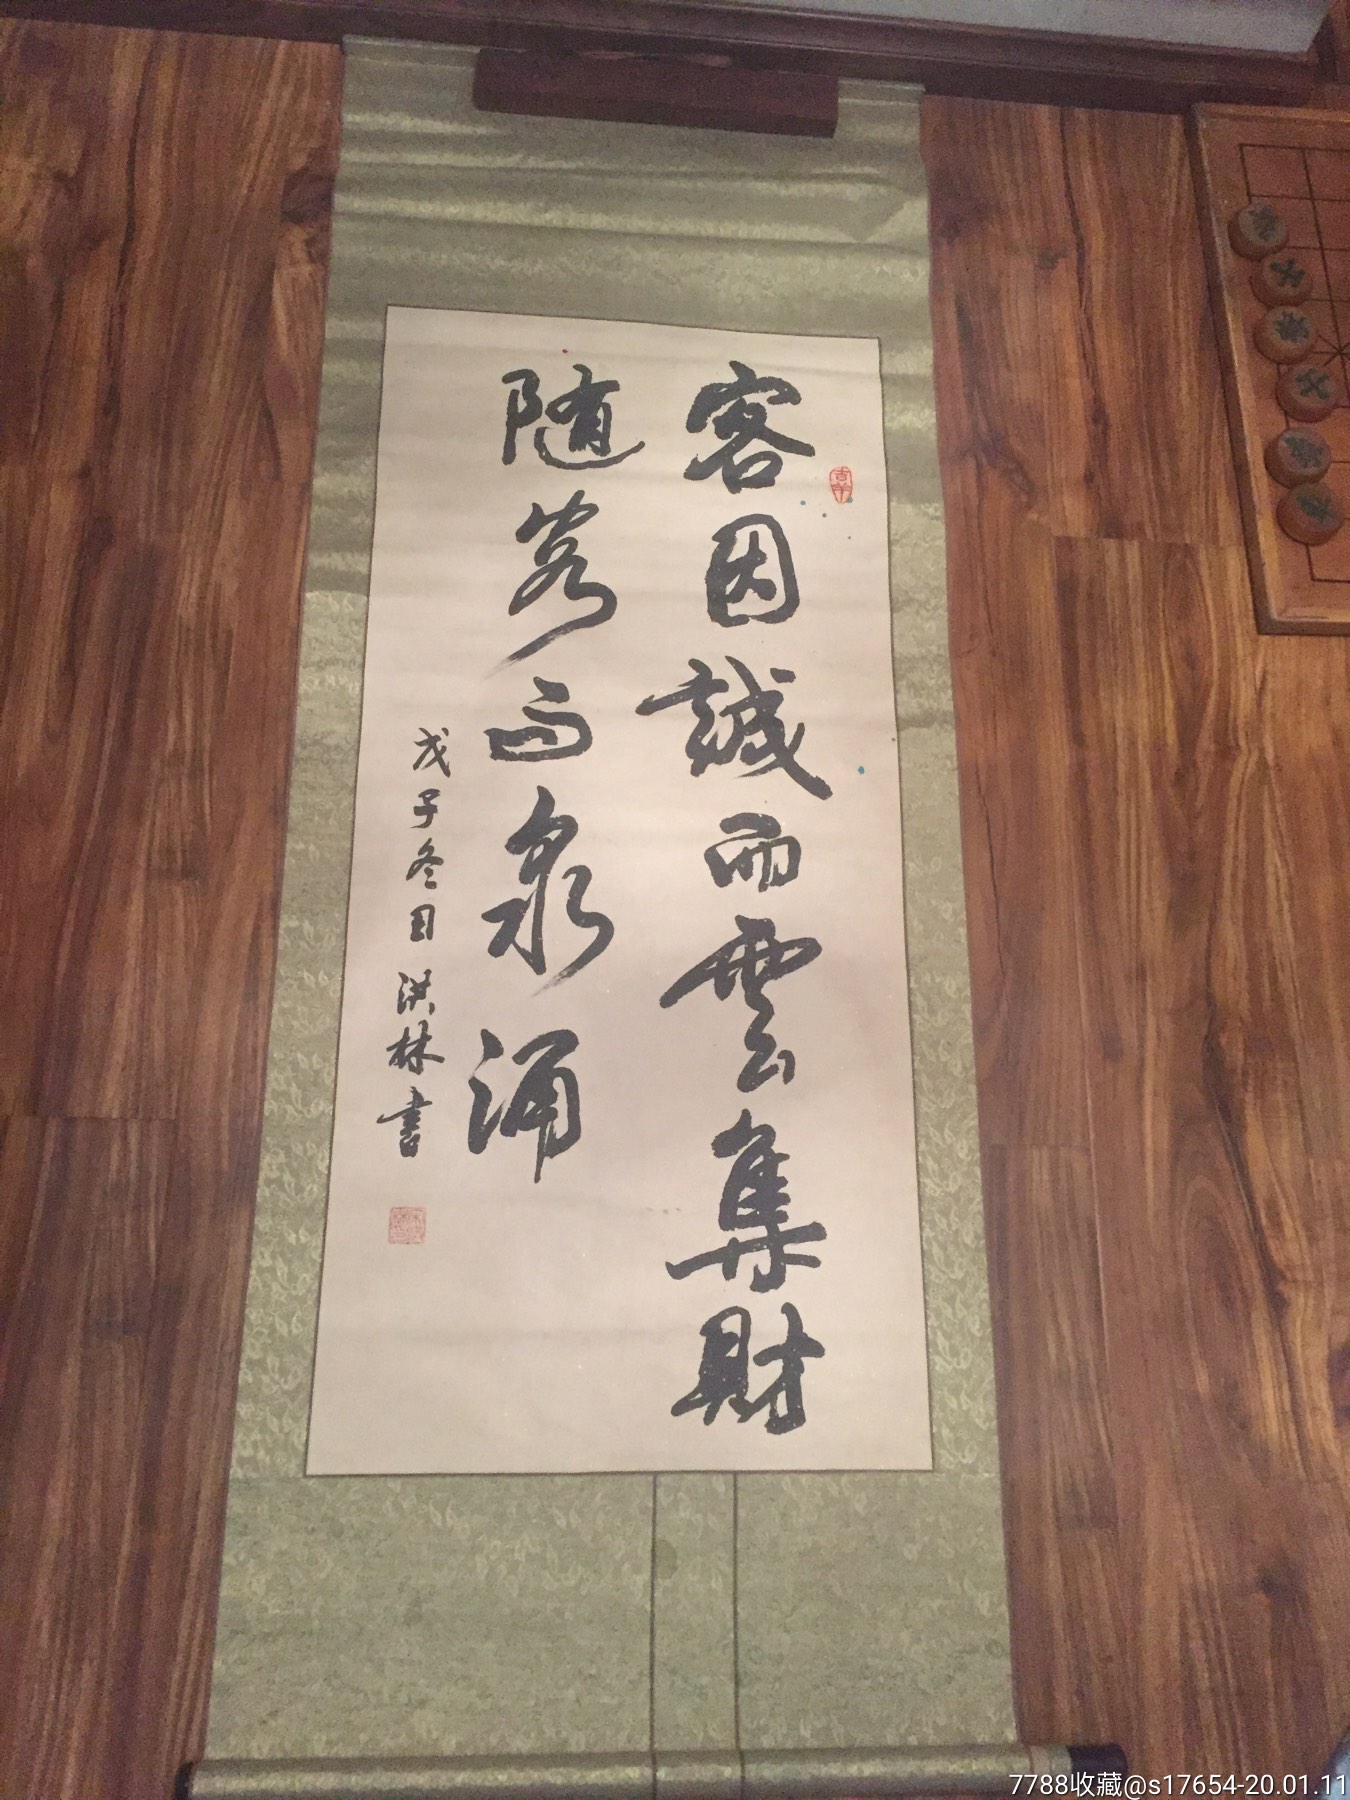 客因誠而雲集財
随而泉涌
戊子冬月洪林書
吉羊
7788收藏@s17654-20.01.11